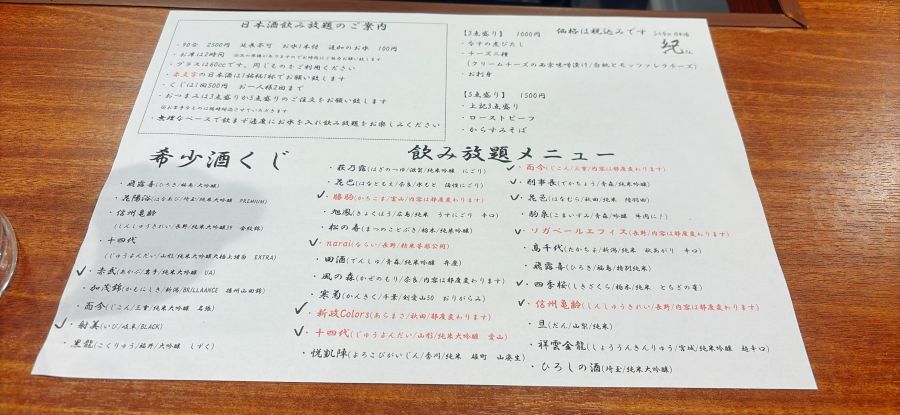 日本酒飲み放題のご案内
・90分 2500円 延長不可 お水1本付 追加のお水 100円
・お席は2時間
・グラスは60ccです。同じものをご利用ください
・赤文字の日本酒は1銘柄1杯でお願い致します
・くじは1回500円 お一人様2回まで
・おつまみは3点盛りか5点盛りのご注文をお願い致します
・無理なペースで飲まず適度にお水を入れ飲み放題をお楽しみください
【3点盛り】 1000円 価格は税込みです
・なすの煮びたし
・チーズ二種
(クリームチーズの西京味噌漬け/白桃とモッツァレラチーズ)
・お刺身
【5点盛り】 1500円
・上記3点盛り
・ローストビーフ
・からすみそば
希少酒くじ
・飛露喜(ひろき/福島/大吟醸)
・花陽浴(はなあび/埼玉/純米大吟醸 PREMIUM)
・信州亀齢
(しんしゅうきれい/長野/純米大吟醸39 金紋錦)
・十四代
(じゅうよんだい/山形/純米大吟醸大極上諸白 EXTRA)
・赤武(あかぶ/岩手/純米大吟醸 UA)
・加茂錦(かもにしき/新潟/BRILLAANCE 播州山田錦)
・而今(じこん/三重/純米大吟醸 名張)
・射美(いび/岐阜/BLACK)
・黒龍(こくりゅう/福井/大吟醸 しずく)
飲み放題メニュー
・萩乃露(はぎのつゆ/滋賀/純米吟醸 にごり)
・花巴(はなともえ/奈良/水もと 活性にごり)
・勝駒(かちこま/富山/内容は都度変わります)
・旭鳳(きょくほう/広島/純米 うすにごり 辛口)
・松の寿(まつのことぶき/栃木/純米吟醸)
・narai(ならい/長野/精米等级公開)
・田酒(でんしゅ/青森/純米吟醸 弁慶)
・風の森(かぜのもり/奈良/内容は都度変わります)
・寒菊(かんきく/千葉/剣愛山50 おりがらみ)
・新政Colors(あらまさ/秋田/都度変わります)
・十四代(じゅうよんだい/山形/純米大吟醸 愛山)
・悦凱陣(よろこびがいじん/香川/純米 雄町 山廃生)
・而今(じこん/三重/内容は都度変わります)
・刑事長(でかちょう/青森/純米吟醸)
・花邑(はなむら/秋田/純米 陸羽田)
・駒泉(こまいずみ/青森/吟醸 牛肉に!)
・ソガペールエフィス(長野/内容は都度変わります)
・鳥千代(たかちよ/新潟/純米 秋あがり 辛口)
・飛露喜(ひろき/福島/特別純米)
・四季桜(しきざくら/栃木/純米 とちぎの星)
・信州亀齢(しんしゅうきれい/長野/内容は都度変わります)
・旦(だん/山梨/純米)
・祥雲金龍(しょううんきんりゅう/宮城/純米吟醸 超辛口)
・ひろしの酒(埼玉/純米大吟醸)